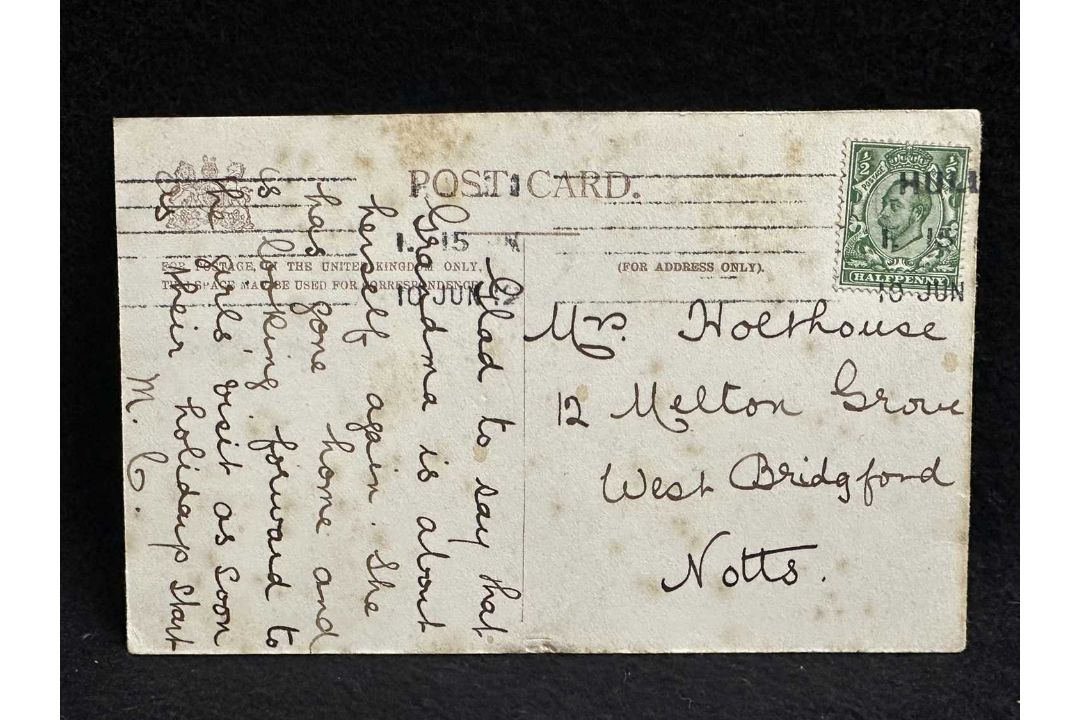 POST CARD.
FOR POSTAGE IN THE UNITED KINGDOM ONLY,
THIS SPACE MAY BE USED FOR CORRESPONDENCE
(FOR ADDRESS ONLY).
1. 15
10 JUN
½ ½
POSTAGE
HALFPENNY
HULL
1. 15
10 JUN
Glad to say that
Grandma is about
herself again. She
has gone home and
is looking forward to
the girls' visit as soon
as their holidays start
M. C.
Mrs. Holthouse
12 Melton Grove
West Bridgford
Notts.